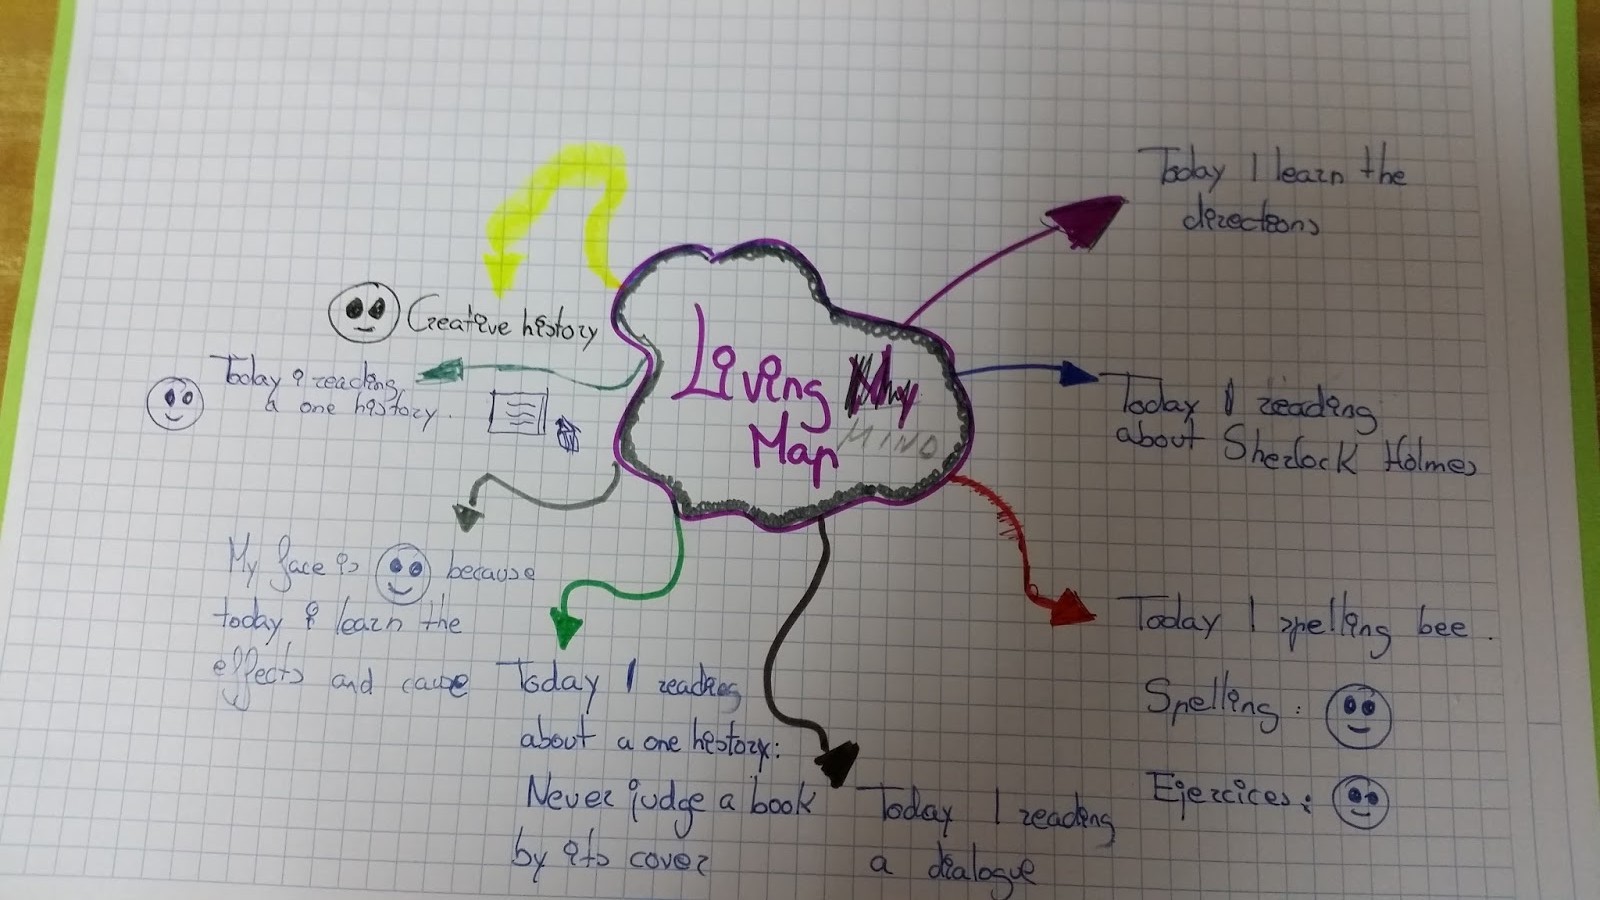 Living
Map MIND
Today I learn the
directions
Today I reading
about Sherlock Holmes
Today I spelling bee.
Spelling:
Ejercices:
Today I reading
a dialogue
Today I reading
about a one history:
Never judge a book
by its cover
My face is because
today i learn the
effects and cause
Today i reading
a one history.
Creative history